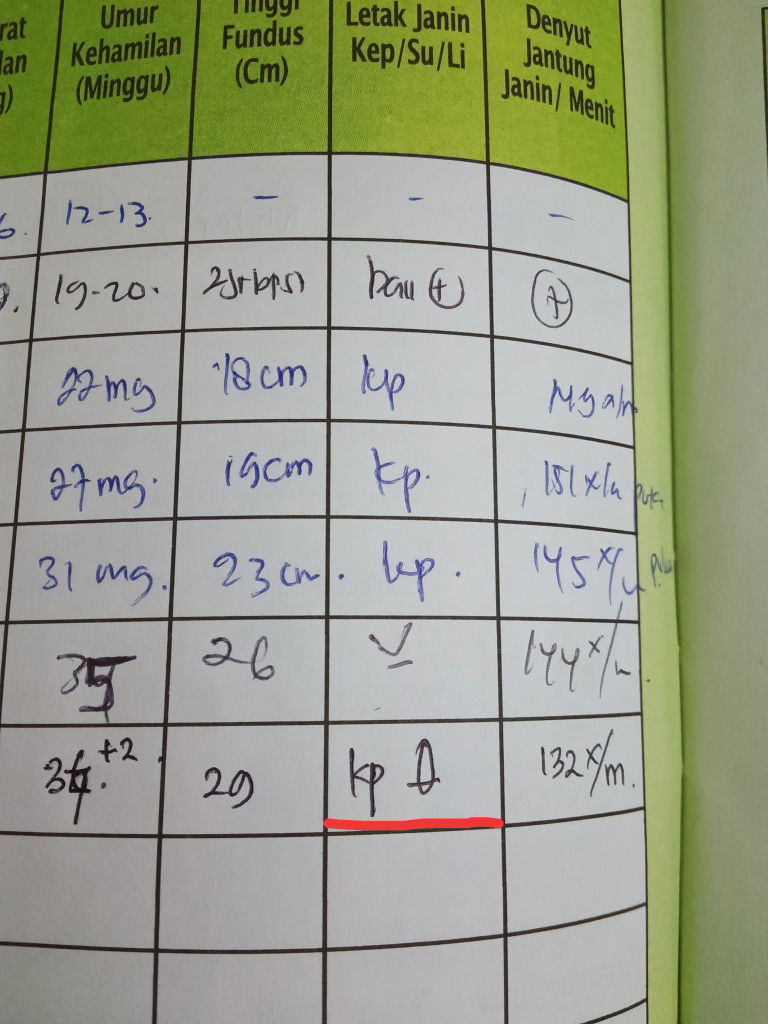 rat
lan
g)
Umur
Kehamilan
(Minggu)
Tinggi
Fundus
(Cm)
Letak Janin
Kep/Su/Li
Denyut
Jantung
Janin/ Menit
6. 12-13. - - -
19-20. (+)
22 mg 18 cm kp
27 mg. 19 cm kp. 151 x/
31 mg. 23 cm. kp. 145 x/
35 26 144 x/
+2 29 kp 132 x/m.